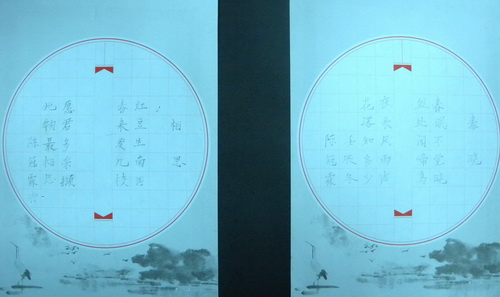 相思
红豆生南国
春来发几枝
愿君多采撷
此物最相思
陈冠霖
春晓
春眠不觉晓
处处闻啼鸟
夜来风雨声
花落知多少
陈冠霖